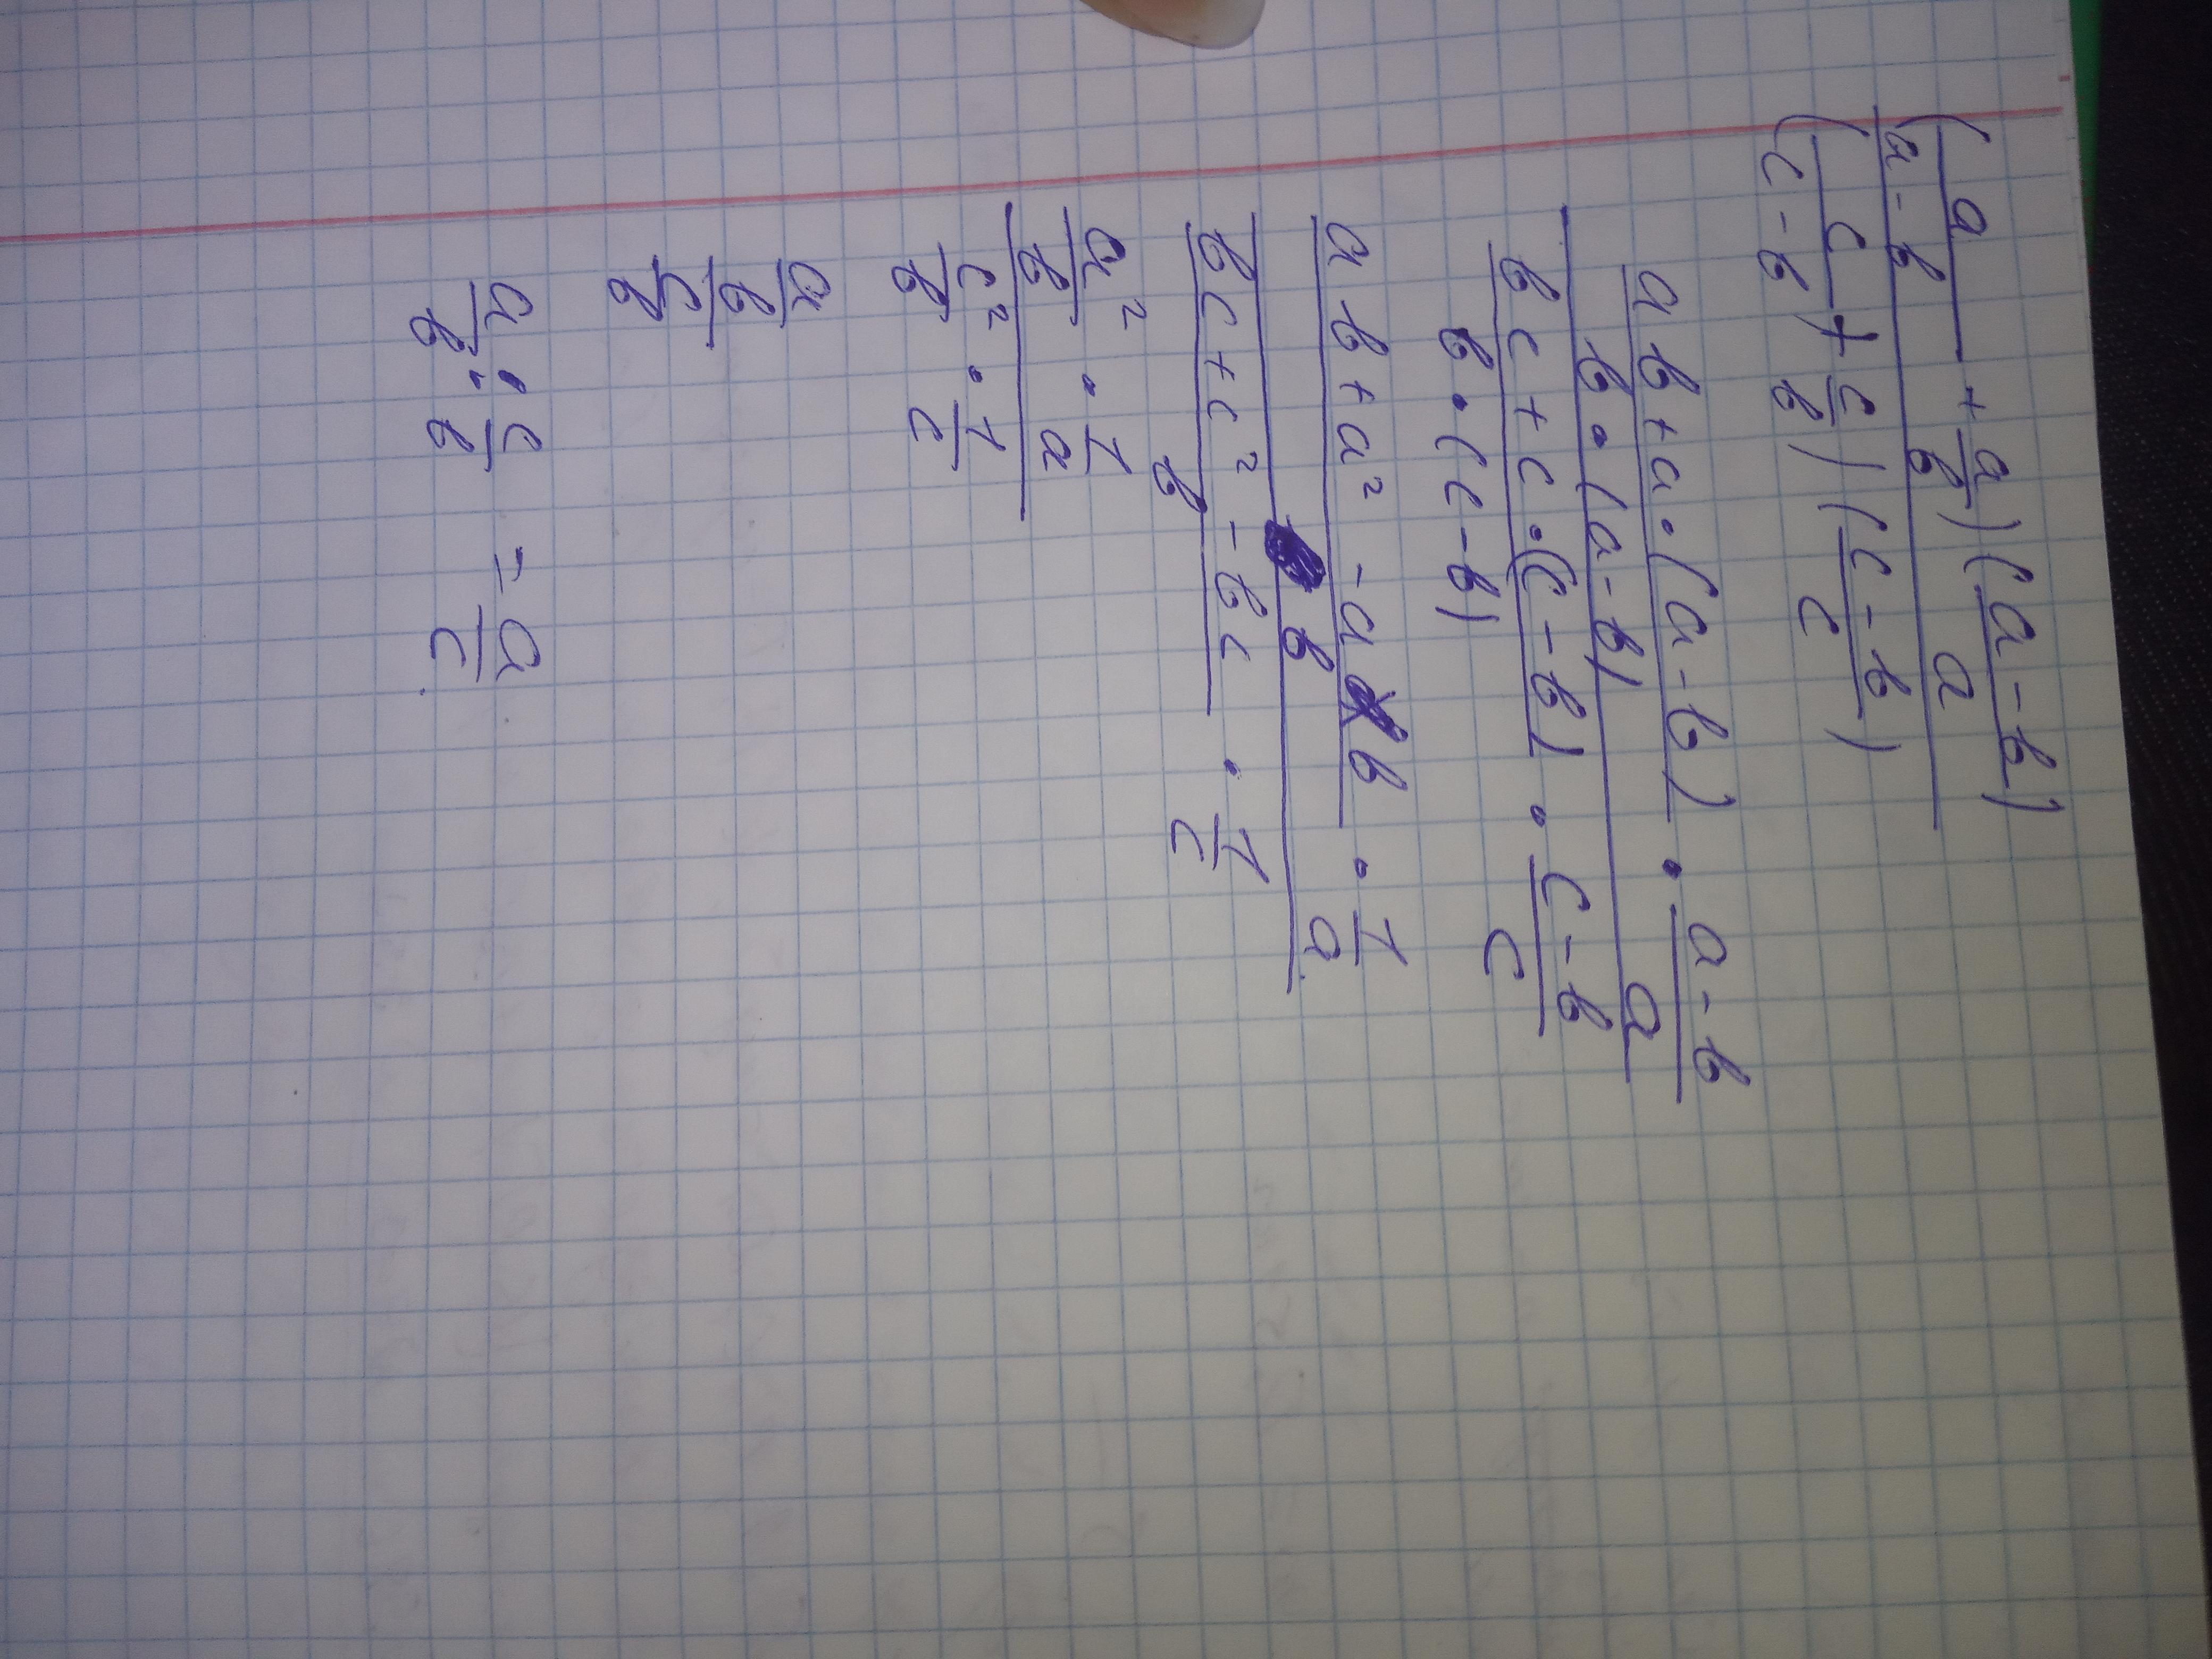 (a/(a-b) + a/b)((a-b)/a)
(c/(c-b) + c/b)((c-b)/c)
(ab+a·(a-b))/(b·(a-b)) · (a-b)/a
(bc+c·(c-b))/(b·(c-b)) · (c-b)/c
(ab+a²-ab)/b · 1/a
(bc+c²-bc)/b · 1/c
a²/b · 1/a
c²/b · 1/c
a/b
c/b
a/b : c/b = a/c